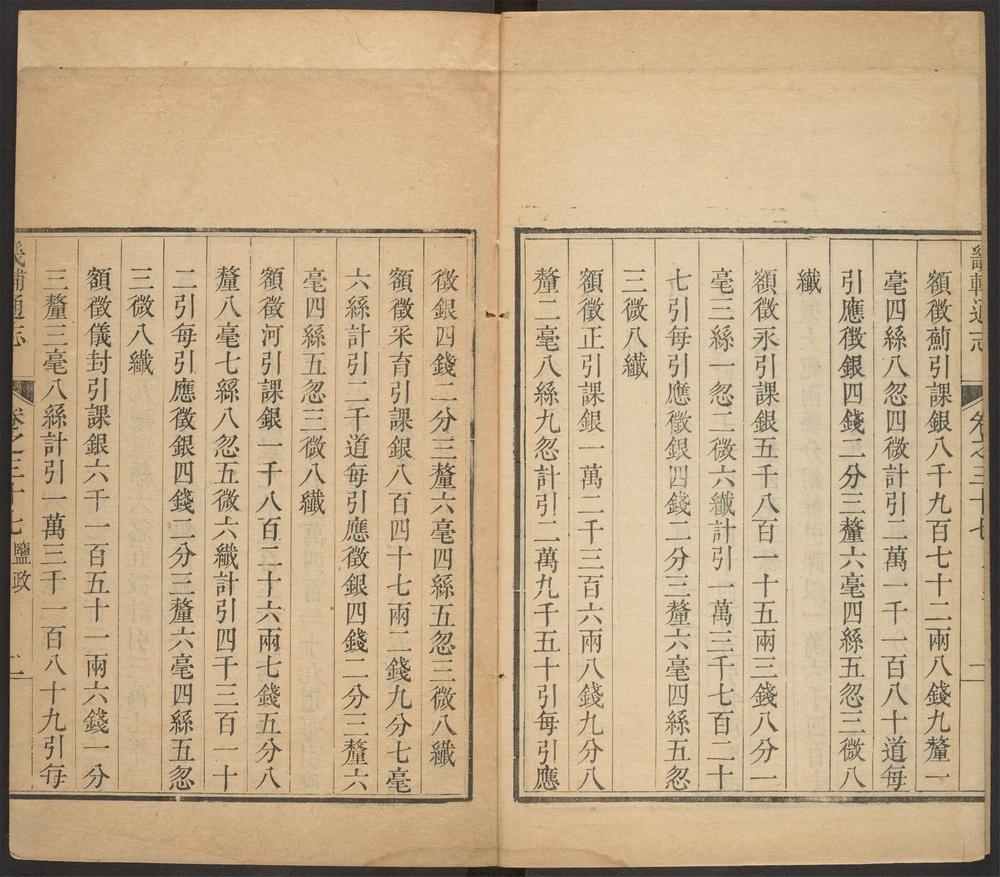 畿輔通志 卷之三十七 二
額徵薊引課銀八千九百七十二兩八錢九釐一
毫四絲八忽四微計引二萬一千一百八十道每
引應徵銀四錢二分三釐六毫四絲五忽三微八
纖
額徵永引課銀五千八百一十五兩三錢八分一
毫三絲一忽二微六纖計引一萬三千七百二十
七引每引應徵銀四錢二分三釐六毫四絲五忽
三微八纖
額徵正引課銀一萬二千三百六兩八錢九分八
釐二毫八絲九忽計引二萬九千五十引每引應
徵銀四錢二分三釐六毫四絲五忽三微八纖
額徵采育引課銀八百四十七兩二錢九分七毫
六絲計引二千道每引應徵銀四錢二分三釐六
毫四絲五忽三微八纖
額徵河引課銀一千八百二十六兩七錢五分八
釐八毫七絲八忽五微六纖計引四千三百一十
二引每引應徵銀四錢二分三釐六毫四絲五忽
三微八纖
額徵儀封引課銀六千一百五十一兩六錢一分
三釐三毫八絲計引一萬三千一百八十九引每
畿輔通志 卷之三十七 鹽政 二